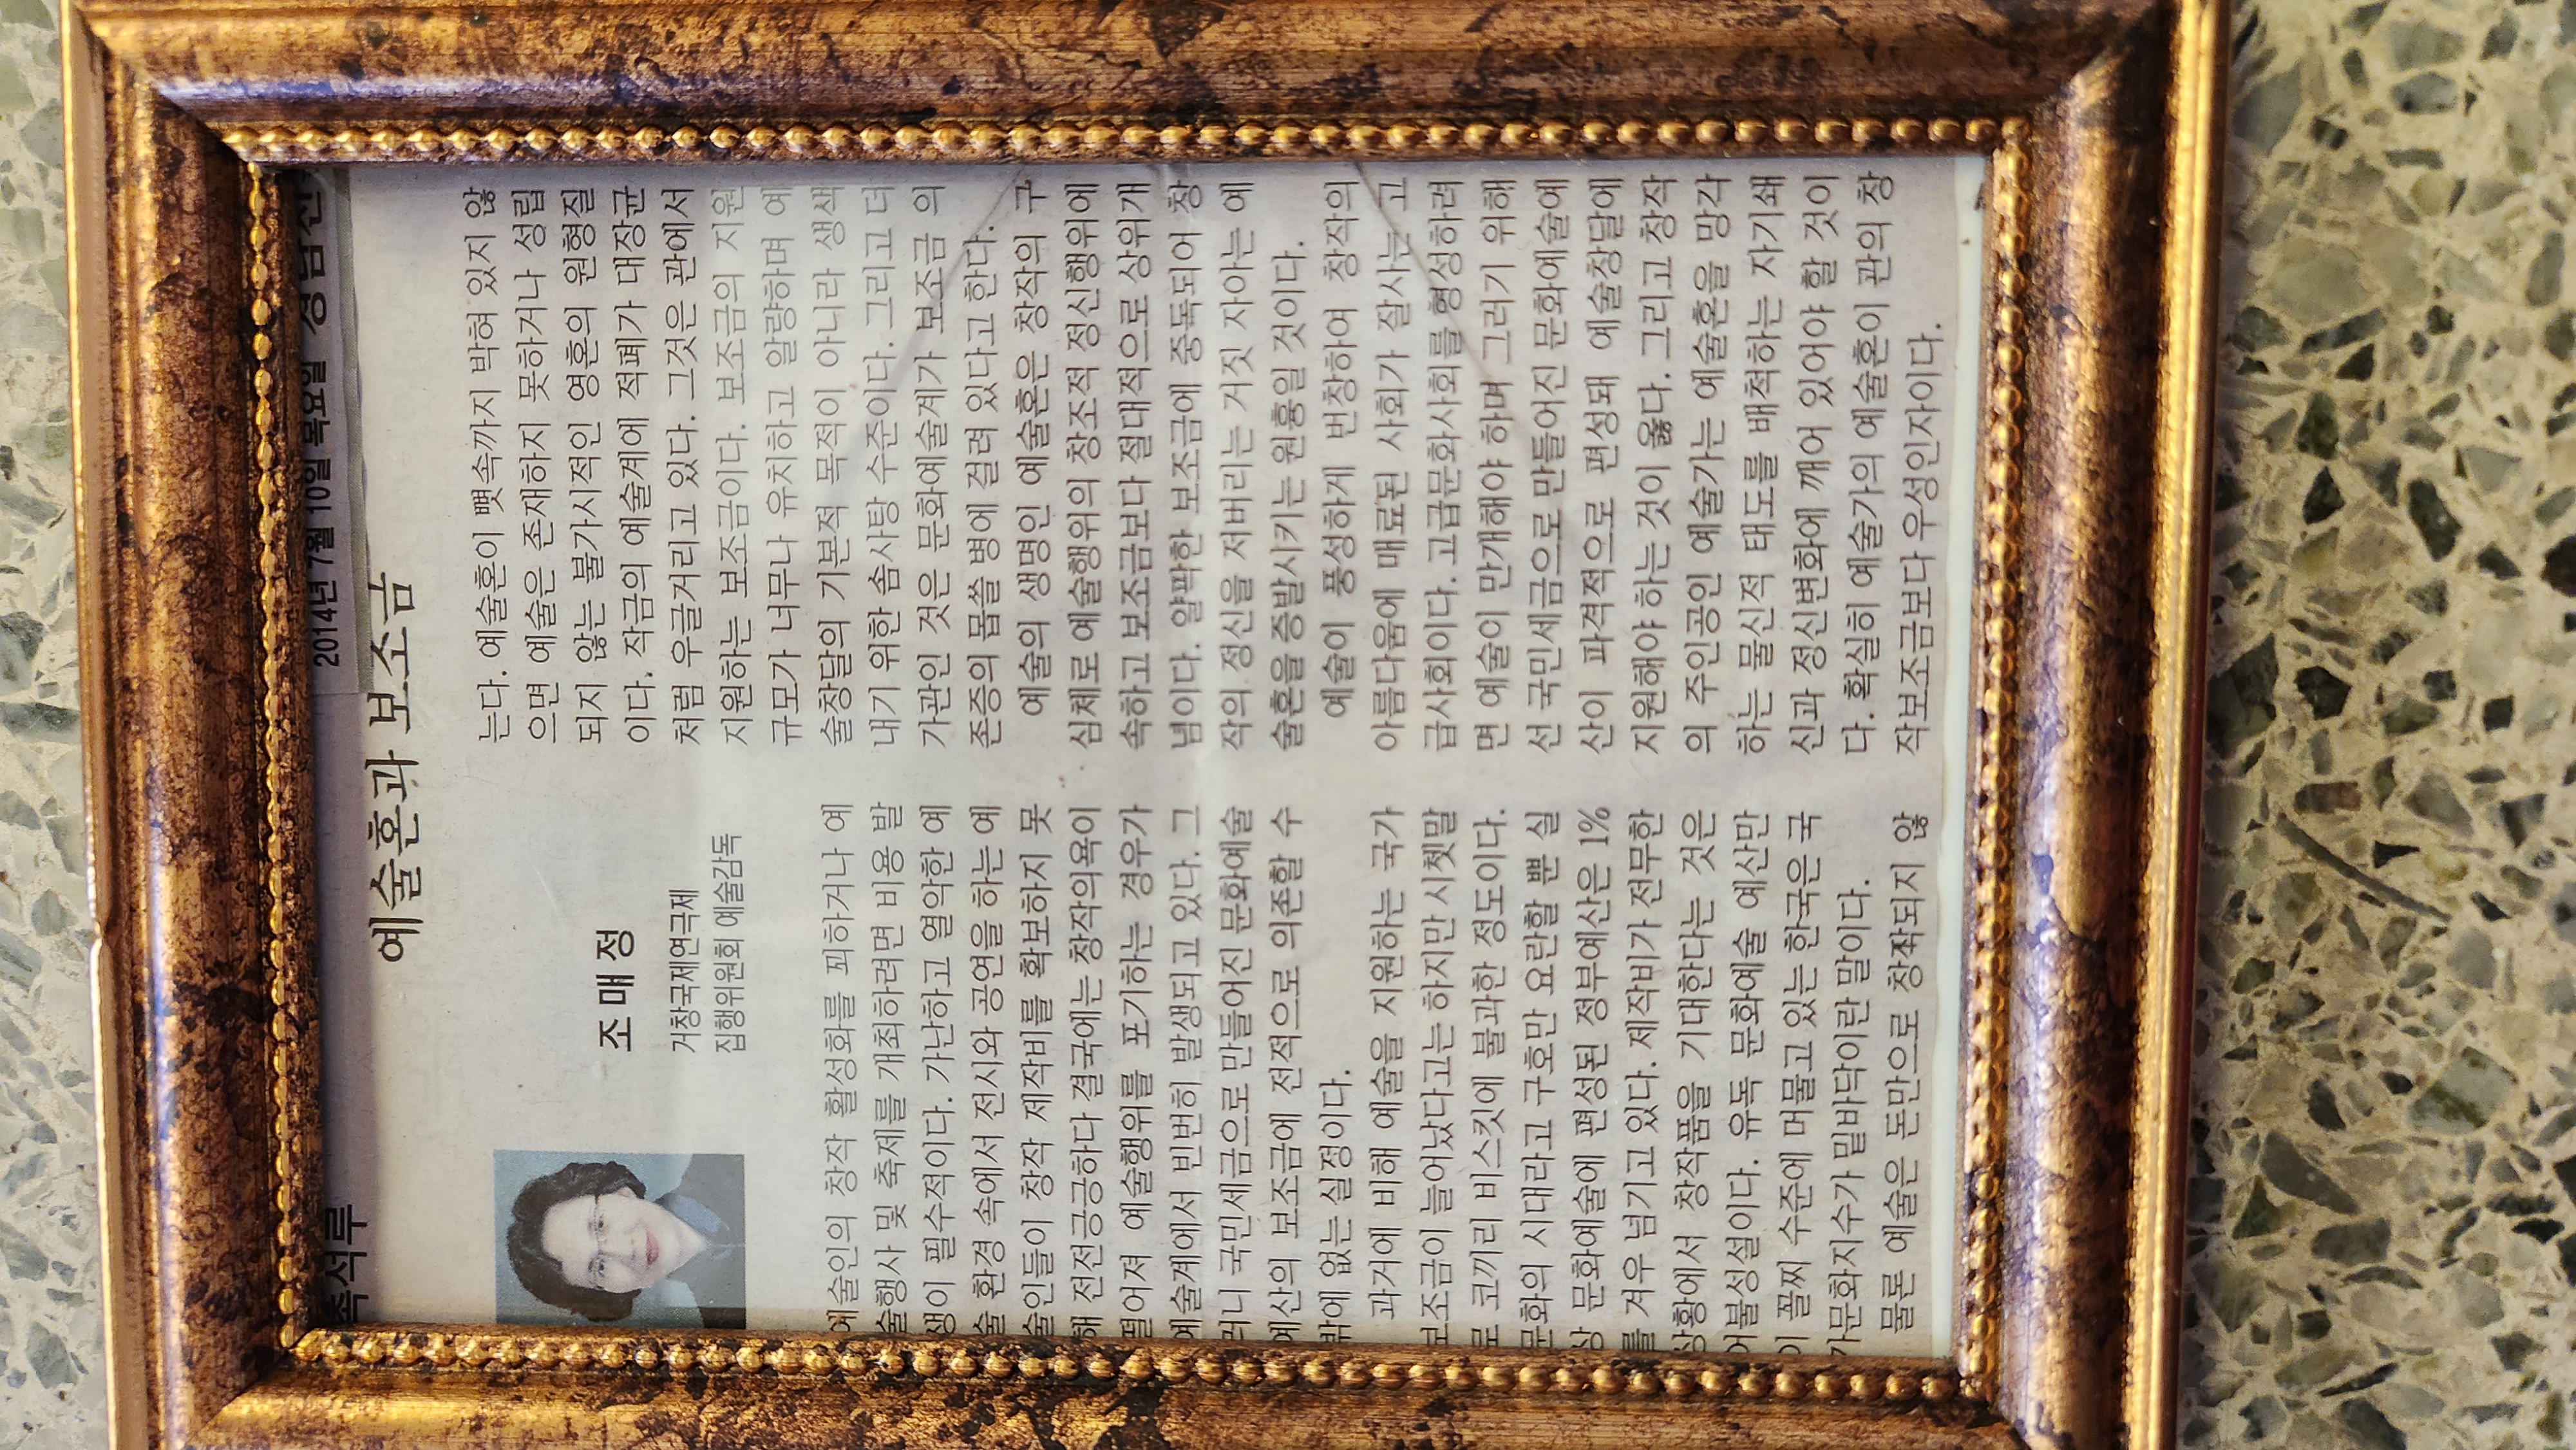 촉석루
2014년 7월 10일 목요일
예술혼과 보조금
조매정
거창국제연극제
집행위원회 예술감독
예술인의 창작 활성화를 꾀하거나 예
술행사 및 축제를 개최하려면 비용 발
생이 필수적이다. 가난하고 열악한 예
술 환경 속에서 전시와 공연을 하는 예
술인들이 창작 제작비를 확보하지 못
해 전전긍긍하다 결국에는 창작의욕이
떨어져 예술행위를 포기하는 경우가
예술계에서 빈번히 발생되고 있다. 그
러니 국민세금으로 만들어진 문화예술
예산의 보조금에 전적으로 의존할 수
밖에 없는 실정이다.
과거에 비해 예술을 지원하는 국가
보조금이 늘어났다고는 하지만 시쳇말
로 코끼리 비스킷에 불과한 정도이다.
문화의 시대라고 구호만 요란할 뿐 실
상 문화예술에 편성된 정부예산은 1%
를 겨우 넘기고 있다. 제작비가 전무한
상황에서 창작품을 기대한다는 것은
어불성설이다. 유독 문화예술 예산만
이 꼴찌 수준에 머물고 있는 한국은 국
가문화지수가 밑바닥이란 말이다.
물론 예술은 돈만으로 창작되지 않
는다. 예술혼이 뼛속까지 박혀 있지 않
으면 예술은 존재하지 못하거나 성립
되지 않는 불가시적인 영혼의 원형질
이다. 작금의 예술계에 적폐가 대장균
처럼 우글거리고 있다. 그것은 관에서
지원하는 보조금이다. 보조금의 지원
규모가 너무나 유치하고 알량하며 예
술창달의 기본적 목적이 아니라 생색
내기 위한 솜사탕 수준이다. 그리고 더
가관인 것은 문화예술계가 보조금 의
존증의 몹쓸 병에 걸려 있다고 한다.
예술의 생명인 예술혼은 창작의 구
심체로 예술행위의 창조적 정신행위에
속하고 보조금보다 절대적으로 상위개
념이다. 얄팍한 보조금에 중독되어 창
작의 정신을 저버리는 거짓 자아는 예
술혼을 증발시키는 원흉일 것이다.
예술이 풍성하게 번창하여 창작의
아름다움에 매료된 사회가 잘사는 고
급사회이다. 고급문화사회를 형성하려
면 예술이 만개해야 하며 그러기 위해
선 국민세금으로 만들어진 문화예술예
산이 파격적으로 편성돼 예술창달에
지원해야 하는 것이 옳다. 그리고 창작
의 주인공인 예술가는 예술혼을 망각
하는 물신적 태도를 배척하는 자기쇄
신과 정신변화에 깨어 있어야 할 것이
다. 확실히 예술가의 예술혼이 관의 창
작보조금보다 우성인자이다.